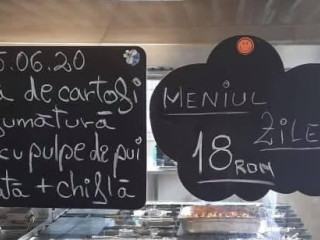 5.06.20
ă de cartofi
umătură
cu pulpe de pui
ată + chiflă
MENIUL
ZILE
18 RON